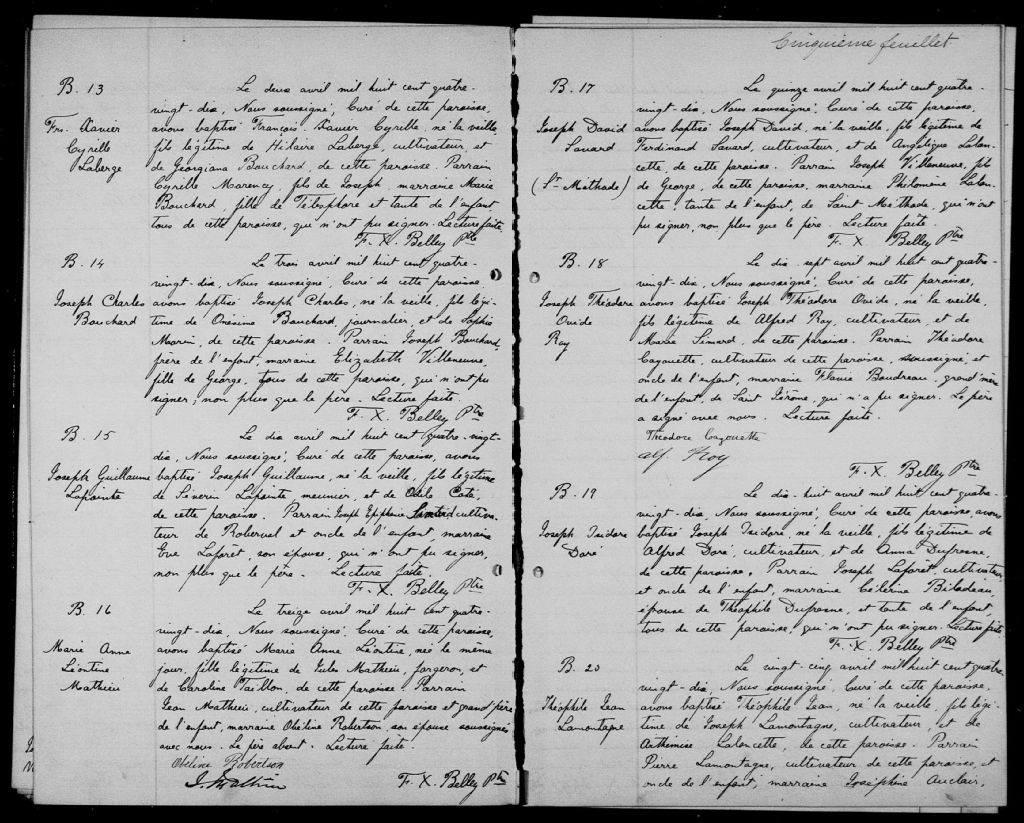 B. 13
Frs. Xavier
Cyrille
Laberge
Le deux avril mil huit cent quatre-
vingt-dix, Nous soussigné, Curé de cette paroisse,
avons baptisé François Xavier Cyrille, né la veille,
fils légitime de Hilaire Laberge, cultivateur, et
de Georgiana Bouchard, de cette paroisse. Parrain
Cyrille Morency, fils de Joseph, marraine Marie
Bouchard, fille de Télesphore et tante de l'enfant
tous de cette paroisse, qui n'ont pu signer. Lecture faite.
F. X. Belley Ptre
B. 14
Joseph Charles
Bouchard
Le trois avril mil huit cent quatre-
vingt-dix, Nous soussigné, Curé de cette paroisse,
avons baptisé Joseph Charles, né la veille, fils légi-
time de Onésime Bouchard, journalier, et de Sophie
Morin, de cette paroisse. Parrain Joseph Bouchard,
frère de l'enfant, marraine Elizabeth Villeneuve,
fille de George, tous de cette paroisse, qui n'ont pu
signer, non plus que le père. Lecture faite.
F. X. Belley Ptre
B. 15
Joseph Guillaume
Lapointe
Le dix avril mil huit cent quatre-vingt-
dix, Nous soussigné, Curé de cette paroisse, avons
baptisé Joseph Guillaume, né la veille, fils légitime
de Séverin Lapointe, meunier, et de Odile Coté,
de cette paroisse. Parrain Joseph Epiphane cultiva-
teur de Roberval et oncle de l'enfant, marraine
Eve Laforet, son épouse, qui n'ont pu signer,
non plus que le père. Lecture faite.
F. X. Belley Ptre
B. 16
Marie Anne
Léontine
Mathieu
Le treize avril mil huit cent quatre-
vingt-dix, Nous soussigné, Curé de cette paroisse,
avons baptisé Marie Anne Léontine, née le même
jour, fille légitime de Jules Mathieu, forgeron, et
de Caroline Taillon, de cette paroisse. Parrain
Jean Mathieu, cultivateur de cette paroisse et grand'père
de l'enfant, marraine Obéline Robertson, son épouse soussignés
avec nous. Le père absent. Lecture faite.
Obéline Robertson
J. Mathieu
F. X. Belley Ptre
Cinquième feuillet
B. 17
Joseph David
Savard
(St Méthode)
Le quinze avril mil huit cent quatre-
vingt-dix, Nous soussigné, Curé de cette paroisse,
avons baptisé Joseph David, né la veille, fils légitime de
Ferdinand Savard, cultivateur, et de Angélique Lalan-
cette de cette paroisse. Parrain Joseph Villeneuve, fils
de George, de cette paroisse, marraine Philomène Lalan-
cette, tante de l'enfant, de Saint Méthode, qui n'ont
pu signer, non plus que le père. Lecture faite.
F. X. Belley Ptre
B. 18
Joseph Théodore
Ovide
Roy
Le dix-sept avril mil huit cent quatre-
vingt-dix, Nous soussigné, Curé de cette paroisse,
avons baptisé Joseph Théodore Ovide, né la veille,
fils légitime de Alfred Roy, cultivateur, et de
Marie Simard, de cette paroisse. Parrain Théodore
Cayouette, cultivateur de cette paroisse, soussigné, et
oncle de l'enfant, marraine Flavie Boudreau, grand'mère
de l'enfant, de Saint Jérôme, qui n'a pu signer. Le père
a signé avec nous. Lecture faite.
Théodore Cayouette
Alf. Roy
F. X. Belley Ptre
B. 19
Joseph Isidore
Doré
Le dix-huit avril mil huit cent quatre-
vingt-dix Nous soussigné, Curé de cette paroisse, avons
baptisé Joseph Isidore, né la veille, fils légitime de
Alfred Doré, cultivateur, et de Anna Dufresne,
de cette paroisse. Parrain Joseph Laforet, cultivateur
et oncle de l'enfant, marraine Célerine Bilodeau,
épouse de Théophile Dufresne, et tante de l'enfant,
tous de cette paroisse, qui n'ont pu signer. Lecture faite
F. X. Belley Ptre
B. 20
Théophile Jean
Lamontagne
Le vingt-cinq avril mil huit cent quatre-
vingt-dix, Nous soussigné, Curé de cette paroisse,
avons baptisé Théophile Jean, né la veille, fils légi-
time de Joseph Lamontagne, cultivateur, et de
Arthémise Lalancette, de cette paroisse. Parrain
Pierre Lamontagne, cultivateur de cette paroisse, et
oncle de l'enfant, marraine Joséphine Auclair,